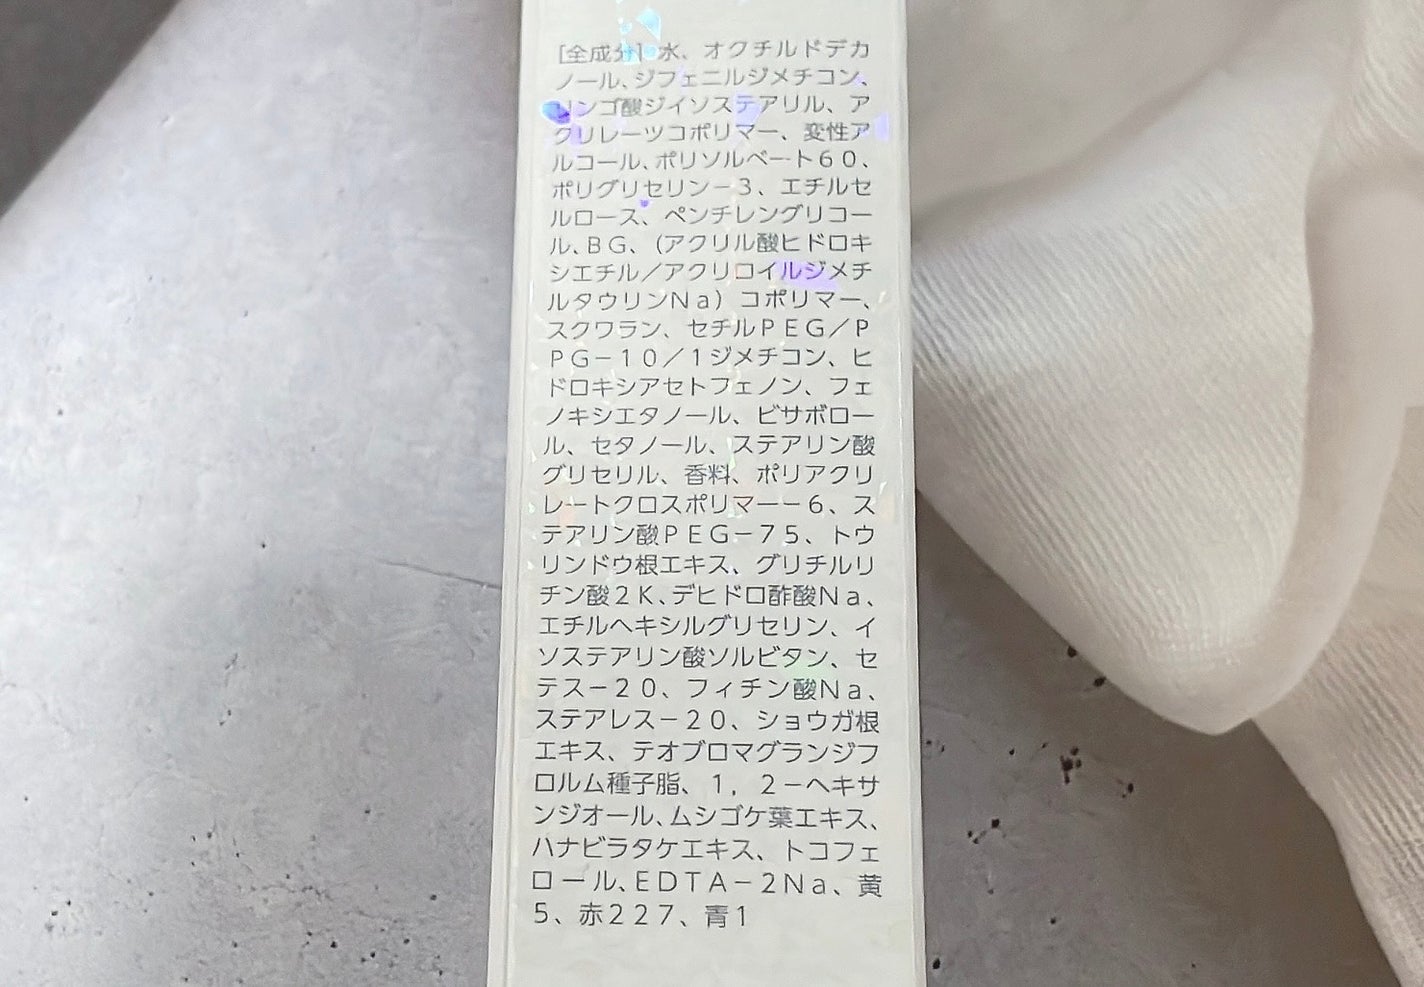 [全成分]水、オクチルドデカ
ノール、ジフェニルジメチコン、
リンゴ酸ジイソステアリル、ア
クリレーツコポリマー、変性ア
ルコール、ポリソルベート60、
ポリグリセリン－3、エチルセ
ルロース、ペンチレングリコー
ル、BG、(アクリル酸ヒドロキ
シエチル／アクリロイルジメチ
ルタウリンNa) コポリマー、
スクワラン、セチルPEG／P
PG－10／1ジメチコン、ヒ
ドロキシアセトフェノン、フェ
ノキシエタノール、ビサボロー
ル、セタノール、ステアリン酸
グリセリル、香料、ポリアクリ
レートクロスポリマー－6、ス
テアリン酸PEG－75、トウ
リンドウ根エキス、グリチルリ
チン酸2K、デヒドロ酢酸Na、
エチルヘキシルグリセリン、イ
ソステアリン酸ソルビタン、セ
テス－20、フィチン酸Na、
ステアレス－20、ショウガ根
エキス、テオブロマグランジフ
ロルム種子脂、1，2－ヘキサ
ンジオール、ムシゴケ葉エキス、
ハナビラタケエキス、トコフェ
ロール、EDTA－2Na、黄
5、赤227、青1